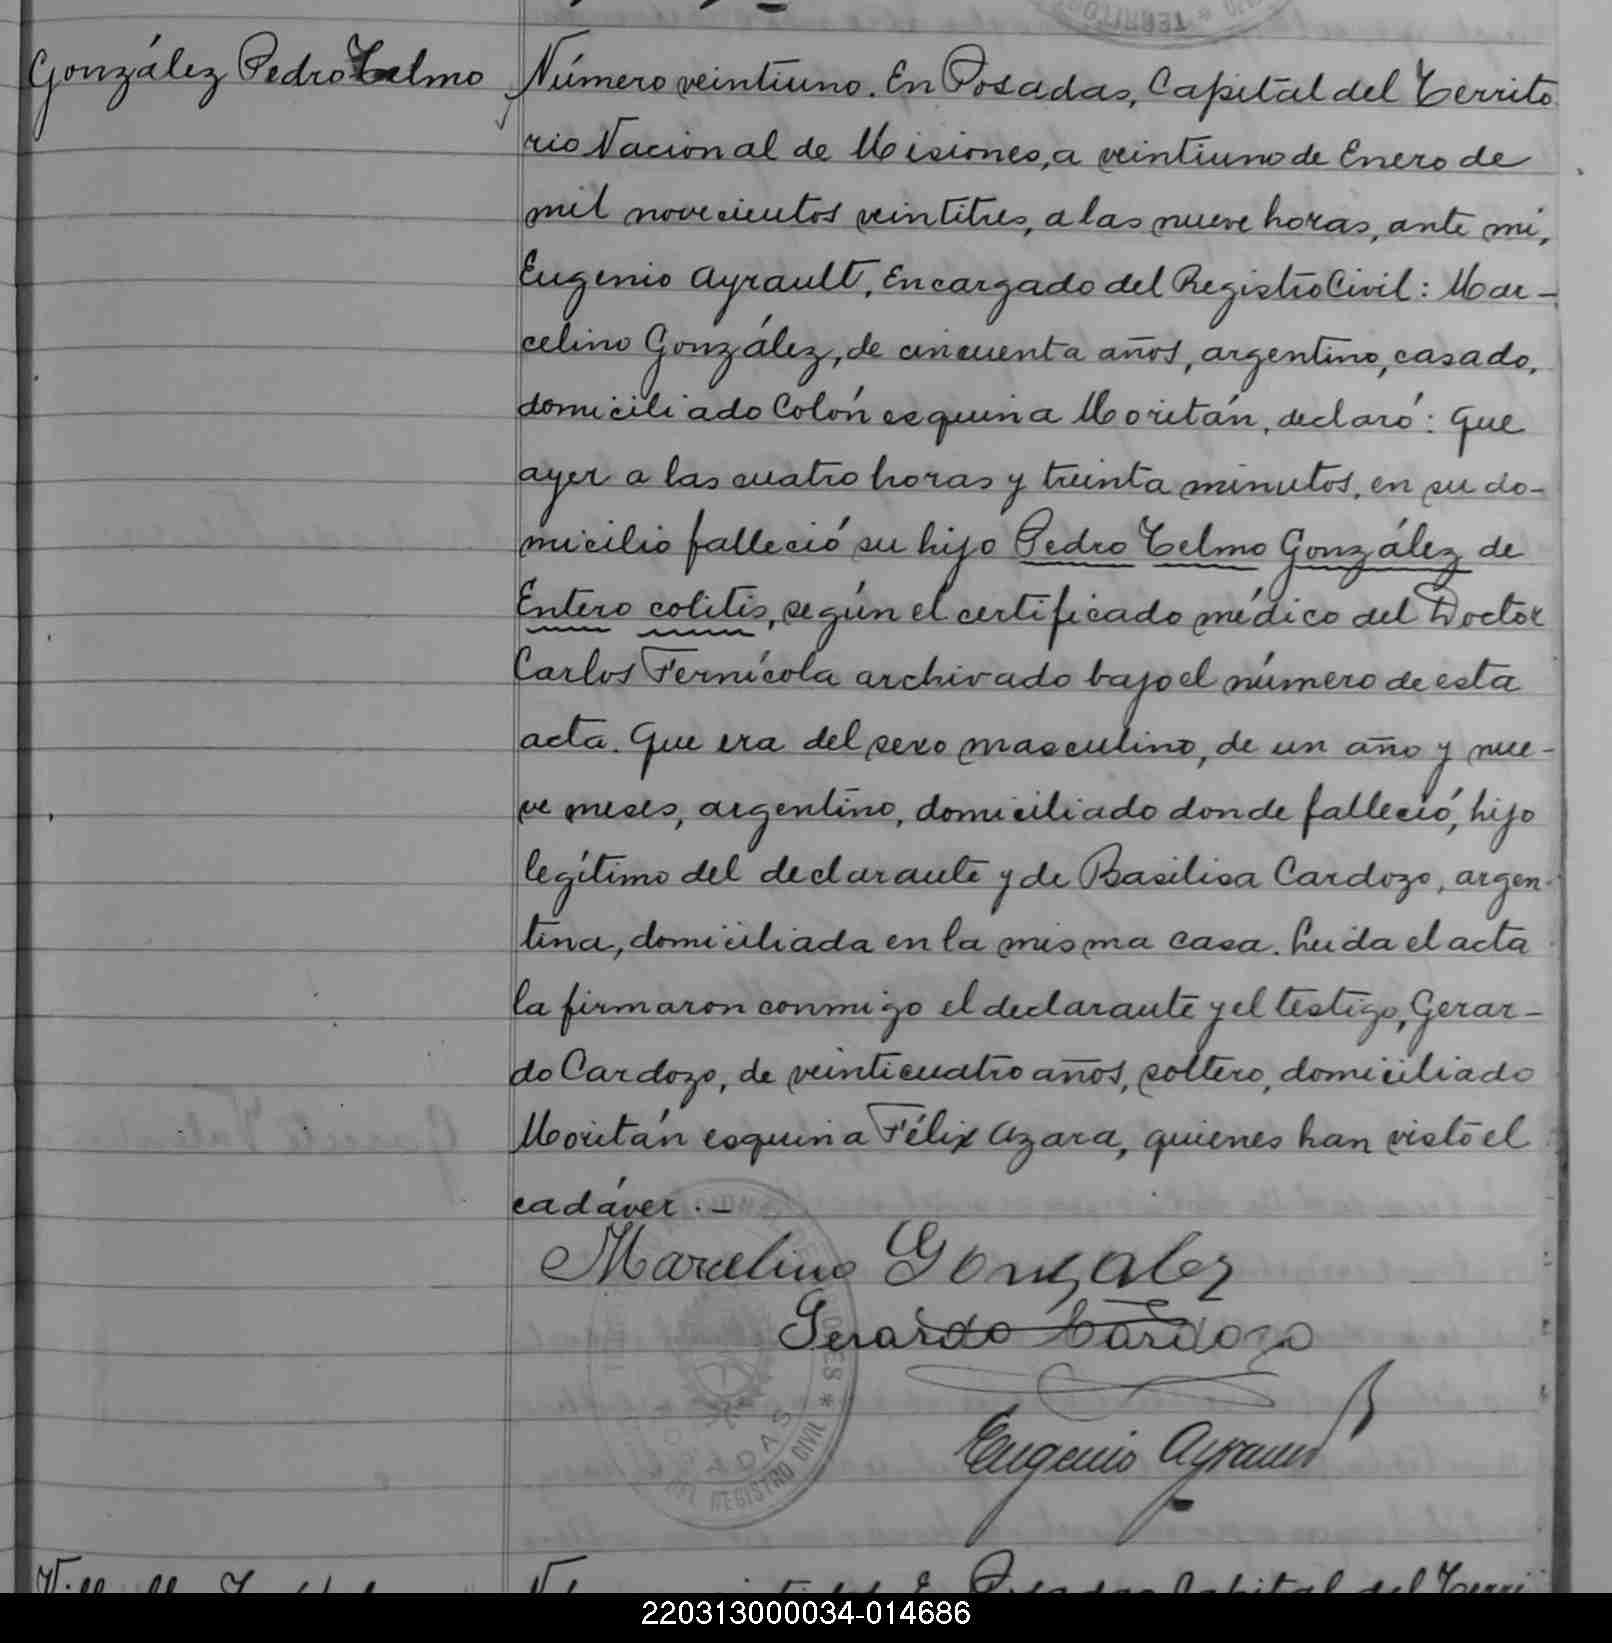 TERRITO
González Pedro Telmo
Número veintiuno. En Posadas, Capital del Territo
rio Nacional de Misiones, a veintiuno de Enero de
mil novecientos veintitres, a las nueve horas, ante mí,
Eugenio Ayrault, Encargado del Registro Civil: Mar-
celino González, de cincuenta años, argentino, casado,
domiciliado Colón esquina Moritán, declaró: Que
ayer a las cuatro horas y treinta minutos, en su do-
micilio falleció su hijo Pedro Telmo González de
Entero colitis, según el certificado médico del Doctor
Carlos Fernícola archivado bajo el número de esta
acta. Que era del sexo masculino, de un año y nue-
ve meses, argentino, domiciliado donde falleció, hijo
legítimo del declarante y de Basilisa Cardozo, argen-
tina, domiciliada en la misma casa. Leida el acta
la firmaron conmigo el declarante y el testigo, Gerar-
do Cardozo, de veinticuatro años, soltero, domiciliado
Moritán esquina Félix Azara, quienes han visto el
cadáver.-
Marcelino Gonzalez
Gerardo Cardozo
Eugenio Ayrault
DEL REGISTRO CIVIL
Posadas Capital del Terri
220313000034-014686